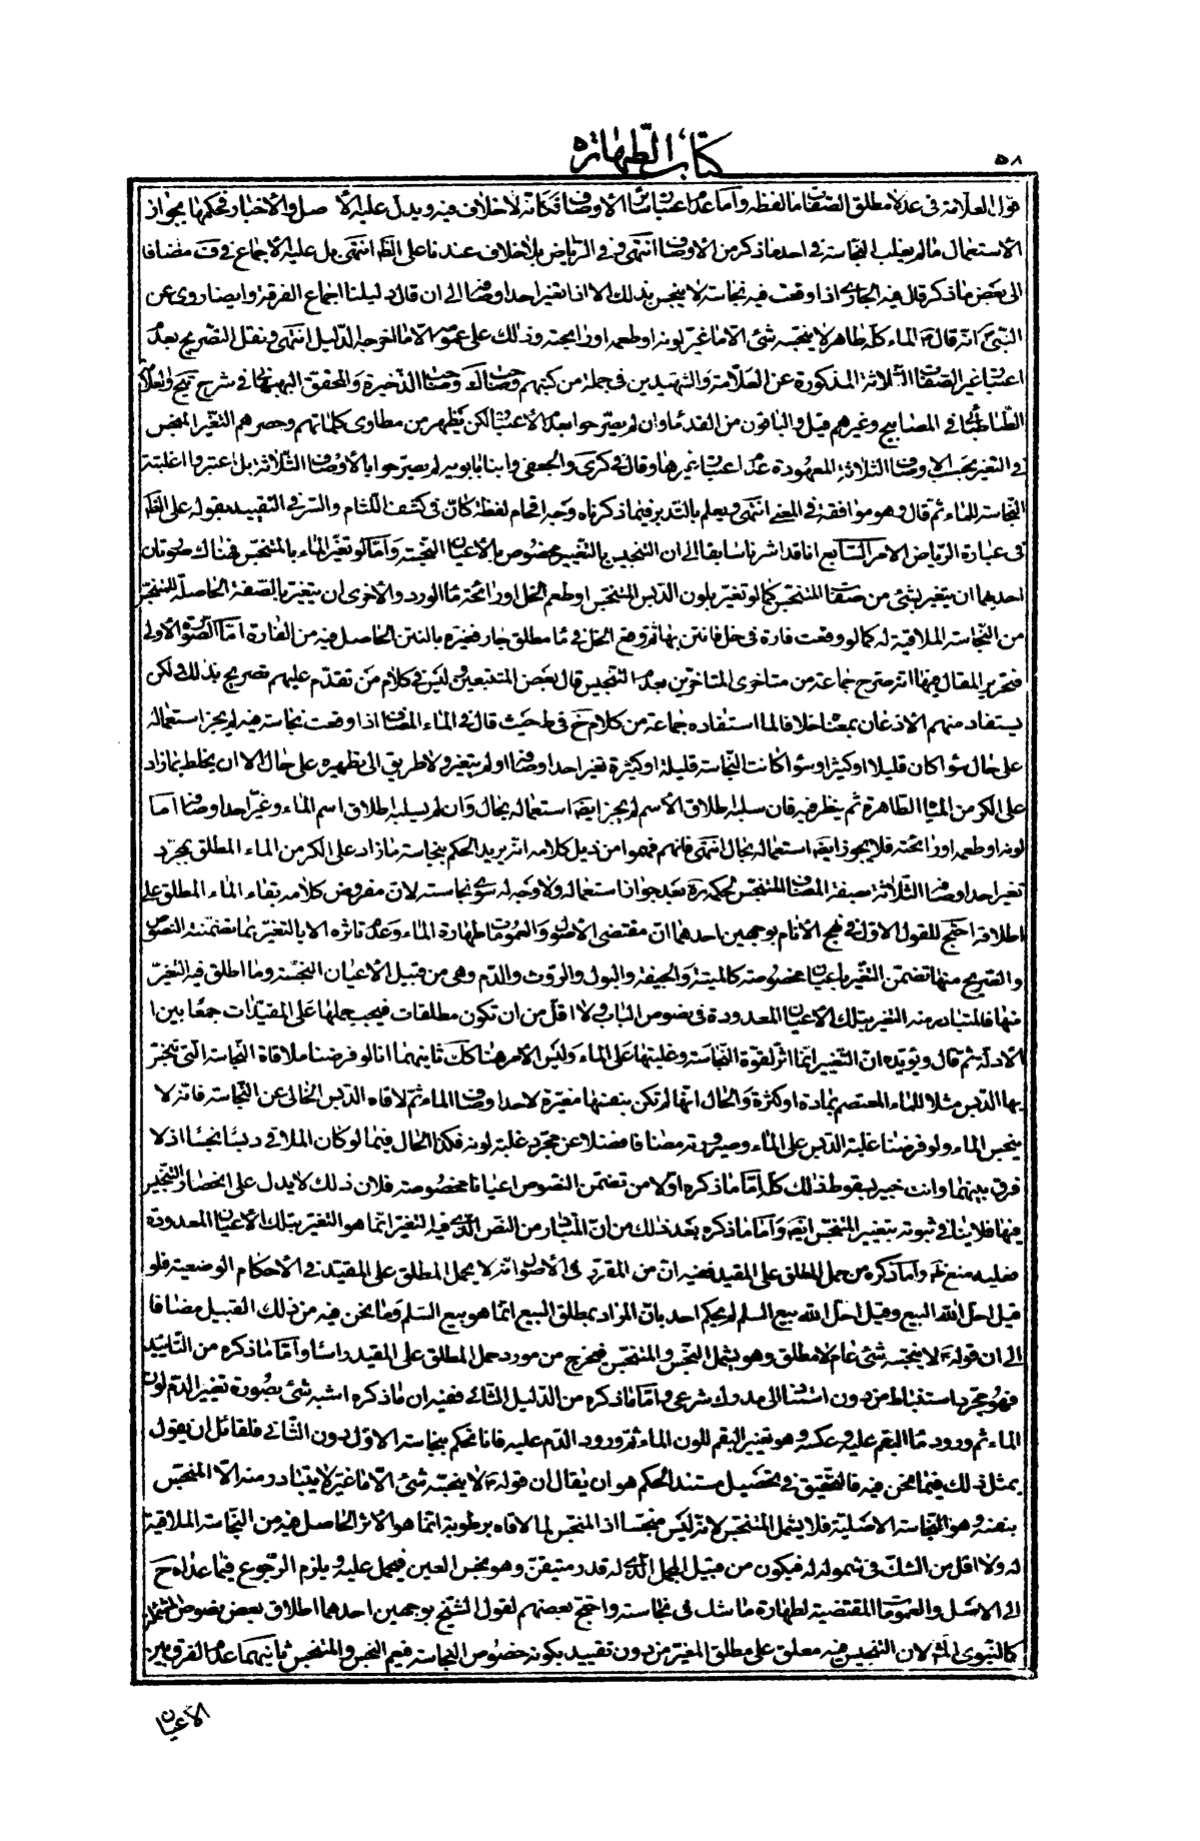 ٥٨
كتاب الطهارة
قول العلامة في عده مطلق الصفات ما لفظه وأما عدم اعتبار سائر الأوصاف فكأنه لا خلاف فيه ويدل عليه الأصل والأخبار فحكمها بجواز
الاستعمال ما لم يغلب النجاسة في احد ما ذكر من الاوصاف انتهى وفي الرياض بلا خلاف عندنا على الظاهر انتهى بل عليه الاجماع في ف مضافا
الى بعض ما ذكر قال فيه الجاري اذا وقعت فيه نجاسة لا ينجس بذلك الا اذا تغير احد اوصافه الى ان قال دليلنا اجماع الفرقة وايضا روى عن
النبي ص انه قال الماء كله طاهر لا ينجسه شئ الا ما غير لونه او طعمه او رائحته وذلك على عمومه الا ما اخرجه الدليل انتهى ونقل التصريح بعدم
اعتبار غير الصفات الثلاثة المذكورة عن العلامة والشهيدين في جملة من كتبهم وصاحب لك وصاحب الذخيرة والمحقق البهبهاني في شرح تيح والعلامة
الطباطبائي في المصابيح وغيرهم قيل والباقون من القدماء وان لم يصرحوا بعدم الاعتبار لكن يظهر من مطاوى كلماتهم وحصرهم التغير المنجس
في التغير بحسب الاوصاف الثلاثة المعهودة عدم اعتبار غيرها وقال في كرى والجعفي وابنا بابويه لم يصرحوا بالأوصاف الثلاثة بل اعتبروا اغلبية
النجاسة للماء ثم قال وهو موافقة في المعنى انتهى ويعلم بالتدبر فيما ذكرناه وجه اقحام لفظة كان في كشف اللثام والسر في التقييد بقوله على الظاهر
في عبارة الرياض الامر السابع انا قد اشرنا سابقا الى ان التنجيس بالتغيير مخصوص بالأعيان النجسة وأما لو تغير الماء بالمتنجس فهناك صورتان
احدهما ان يتغير بشئ من صفات المتنجس كما لو تغير بلون الدبس المتنجس او طعم الخل او رائحة ماء الورد والأخرى ان يتغير بالصفة الحاصلة للمتنجس
من النجاسة الملاقية له كما لو وقعت فارة في خل فانتن بها ثم وقع الخل في ماء مطلق جار فغيره بالنتن الحاصل فيه من الفارة اما الصورة الاولى
فتحرير المقال فيها انه صرح جماعة من متاخرى المتاخرين بعدم التنجيس قال بعض المتتبعين وليس في كلام من تقدم عليهم تصريح بذلك ولكن
يستفاد منهم الاذعان بمعناه خلافا لما استفاده جماعة من كلام الشيخ في ط حيث قال في الماء المضاف اذا وقعت نجاسة فيه لم يجز استعماله
على حال سواء كان قليلا او كثيرا وسواء كانت النجاسة قليلة او كثيرة تغير احد اوصافه او لم يتغير ولا طريق الى تطهيره على حال الا ان يختلط بما زاد
على الكر من المياه الطاهرة ثم ينظر فيه فان سلبه اطلاق الاسم لم يجز ايضا استعماله بحال وان لم يسلبه اطلاق اسم الماء وغير احد اوصافه اما
لونه او طعمه او رائحته فلا يجوز ايضا استعماله بحال انتهى فانهم فهموا من ذيل كلامه انه يريد الحكم بنجاسة ما زاد على الكر من الماء المطلق بمجرد
تغير احد اوصافه الثلاثة بصفة المضاف المتنجس لحكمه ره بعدم جواز استعماله ولا وجه له سوى نجاسته لان مفروض كلامه بقاء الماء المطلق على
اطلاقه احتج للقول الاول في نهج الأنام بوجهين احدهما ان مقتضى الأصل والعمومات طهارة الماء وعدم تاثره الا بالتغير بما تضمنته النصوص
والصريح منها تضمن التغير باعيان مخصوصة كالميتة والجيفة والبول والروث والدم وهى من قبيل الأعيان النجسة وما اطلق فيه التغير
منها فالمتبادر منه التغير بتلك الاعيان المعدودة في نصوص الباب ولا اقل من ان تكون مطلقات فيجب حملها على المقيدات جمعا بين
الادلة ثم قال ويؤيده ان التغيير انما اثر لقوة النجاسة وغلبتها على الماء وليس الأمر هنا كك ثانيهما انا لو فرضنا ملاقاة النجاسة التى تنجس
بها الدبس مثلا للماء المعتصم بمادة او كثرة والحال انها لم تكن بنفسها مغيرة لاحد اوصاف الماء ثم لاقاه الدبس الخالى عن النجاسة فانه لا
ينجس الماء ولو فرضنا غلبة الدبس على الماء وصيرورته مضافا فضلا عن مجرد غلبة لونه فكذا الحال فيما لو كان الملاقى دبسا نجسا اذ لا
فرق بينهما وانت خبير بسقوط ذلك كله اما ما ذكره اولا من تضمن النصوص اعيانا مخصوصة فلان ذلك لا يدل على انحصار التنجيس
فيها فلا ينافي ثبوته بتغيير المتنجس ايضا وأما ما ذكره بعد ذلك من ان المتبادر من النص الذى فيه التغير انما هو التغير بتلك الأعيان المعدودة
فعليه منع ظاهر وأما ذكره من حمل المطلق على المقيد ففيه ان من المقرر في الأصول انه لا يحمل المطلق على المقيد في الأحكام الوضعية فلو
قيل احل الله البيع وقيل احل الله بيع السلم لم يحكم احد بان المراد بمطلق البيع انما هو بيع السلم وما نحن فيه من ذلك القبيل مضافا
الى ان قوله ع لا ينجسه شئ عام لا مطلق وهو يشمل النجس والمتنجس فيخرج من مورد حمل المطلق على المقيد راسا وأما ما ذكره من التاييد
فهو مجرد استنباط من دون استناد الى مدرك شرعى وأما ما ذكره من الدليل الثانى ففيه ان ما ذكره اشبه شئ بصورة تغيير الدم لون
الماء ثم ورود ماء البقم عليه وعكسه وهو تغيير البقم للون الماء ثم ورود الدم عليه فانا نحكم بنجاسة الاول دون الثانى فلقائل ان يقول
بمثل ذلك فيما نحن فيه فالتحقيق في تحصيل مستند الحكم هو ان يقال ان قوله ع لا ينجسه شئ الا ما غير لا يتبادر منه الا المنجس
بنفسه وهو النجاسة الاصلية فلا يشمل المتنجس لانه ليس منجسا اذ المنجس لما لاقاه برطوبة انما هو الاثر الحاصل فيه من النجاسة الملاقية
له ولا اقل من الشك في شموله له فيكون من قبيل المجمل الذى له قدر متيقن وهو نجس العين فيحمل عليه ويلزم الرجوع فيما عداه ح
الى الاصل والعمومات المقتضية لطهارة ما شك في نجاسته واحتج بعضهم لقول الشيخ بوجهين احدهما اطلاق بعض نصوص المسئلة
كالنبوى المشهور لان التنجيس فيه معلق على مطلق المغير من دون تقييد بكونه خصوص النجاسة فيعم النجس والمتنجس ثانيهما عدم الفرق بين
الأعيان